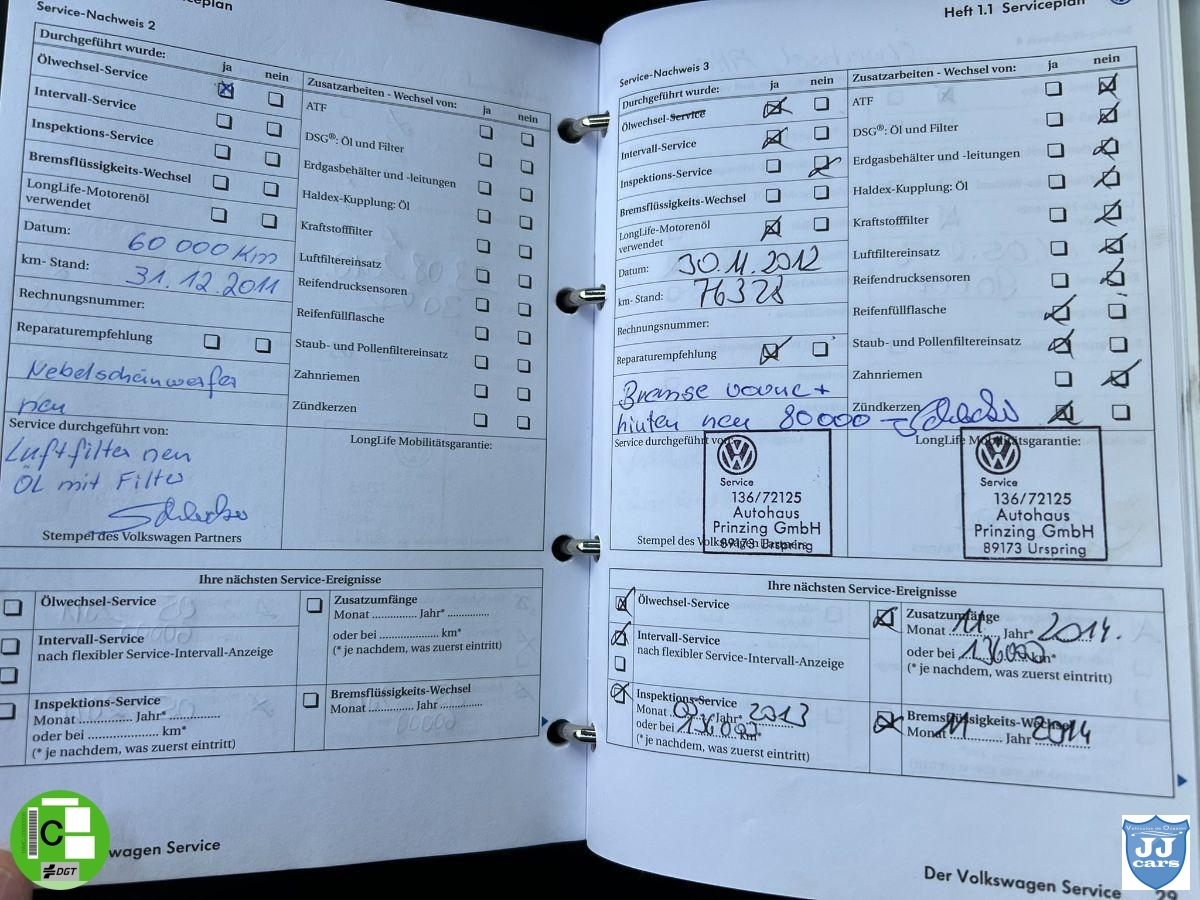 Serviceplan
Service-Nachweis 2
Durchgeführt wurde:
ja
nein
Ölwechsel-Service
Intervall-Service
Inspektions-Service
Bremsflüssigkeits-Wechsel
LongLife-Motorenöl
verwendet
Datum: 60 000 Km
km- Stand: 31.12.2011
Rechnungsnummer:
Reparaturempfehlung
Nebelscheinwerfer
neu
Service durchgeführt von:
Luftfilter neu
ÖL mit Filter
Stempel des Volkswagen Partners
Zusatzarbeiten - Wechsel von:
ja
nein
ATF
DSG®: Öl und Filter
Erdgasbehälter und -leitungen
Haldex-Kupplung: Öl
Kraftstofffilter
Luftfiltereinsatz
Reifendrucksensoren
Reifenfüllflasche
Staub- und Pollenfiltereinsatz
Zahnriemen
Zündkerzen
LongLife Mobilitätsgarantie:
Ihre nächsten Service-Ereignisse
Ölwechsel-Service
Intervall-Service
nach flexibler Service-Intervall-Anzeige
Inspektions-Service
Monat ............ Jahr* ..............
oder bei ...................... km*
(* je nachdem, was zuerst eintritt)
Zusatzumfänge
Monat ............ Jahr* ..............
oder bei .................... km*
(* je nachdem, was zuerst eintritt)
Bremsflüssigkeits-Wechsel
Monat ............ Jahr ..............
wagen Service
C
DGT
Heft 1.1 Serviceplan
Service-Nachweis 3
Durchgeführt wurde:
ja
nein
Ölwechsel-Service
Intervall-Service
Inspektions-Service
Bremsflüssigkeits-Wechsel
LongLife-Motorenöl
verwendet
Datum: 30.11.2012
km- Stand: 76328
Rechnungsnummer:
Reparaturempfehlung
Bremse vorne +
hinten neu 80000
Service durchgeführt von:
Service
136/72125
Autohaus
Prinzing GmbH
89173 Urspring
Stempel des Volkswagen Partners
Zusatzarbeiten - Wechsel von:
ja
nein
ATF
DSG®: Öl und Filter
Erdgasbehälter und -leitungen
Haldex-Kupplung: Öl
Kraftstofffilter
Luftfiltereinsatz
Reifendrucksensoren
Reifenfüllflasche
Staub- und Pollenfiltereinsatz
Zahnriemen
Zündkerzen
LongLife Mobilitätsgarantie:
Service
136/72125
Autohaus
Prinzing GmbH
89173 Urspring
Ihre nächsten Service-Ereignisse
Ölwechsel-Service
Intervall-Service
nach flexibler Service-Intervall-Anzeige
Inspektions-Service
Monat Jahr* 2013
oder bei km*
(* je nachdem, was zuerst eintritt)
Zusatzumfänge
Monat 11 Jahr* 2014.
oder bei km*
(* je nachdem, was zuerst eintritt)
Bremsflüssigkeits-Wechsel
Monat 11 Jahr 2014
Der Volkswagen Service
29
JJ
cars